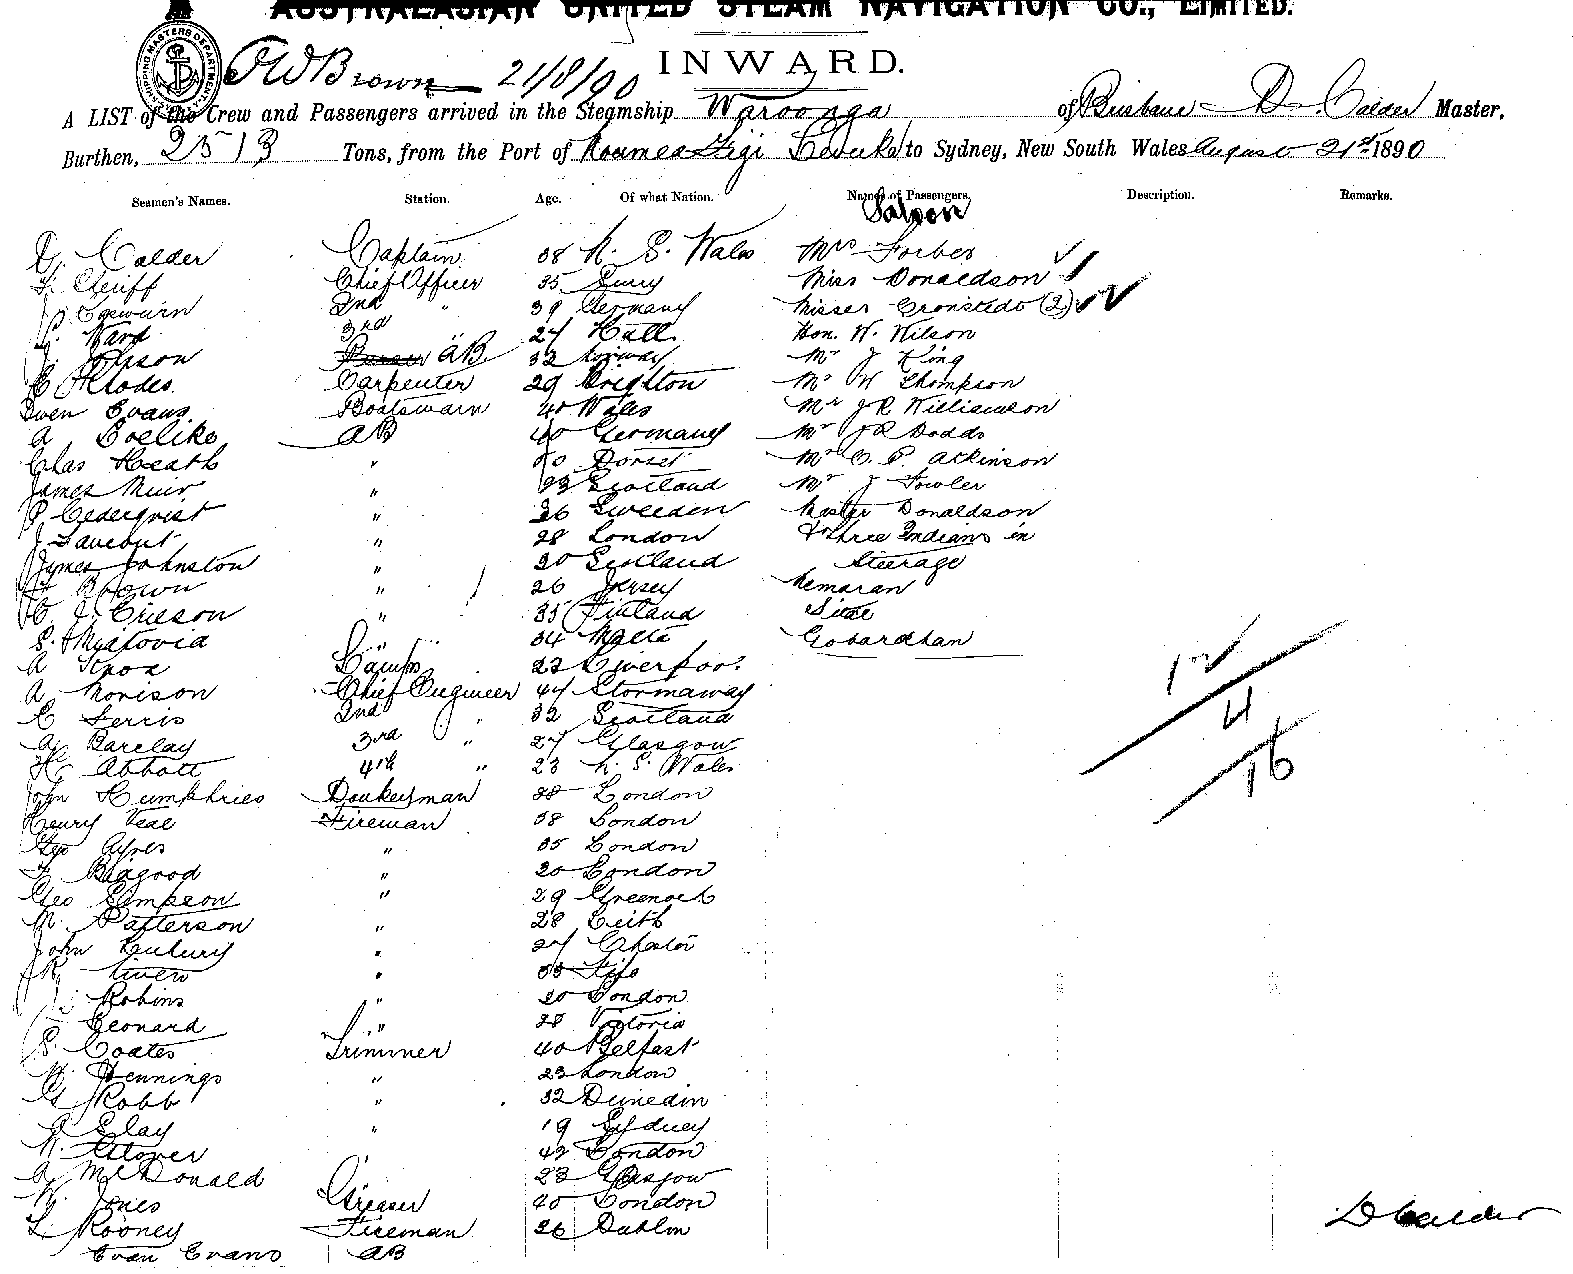 AUSTRALASIAN UNITED STEAM NAVIGATION CO., LIMITED.
INWARD.
SHIPPING MASTERS DEPARTMENT
J W Brown 21/8/90
A LIST of the Crew and Passengers arrived in the Steamship Waroonga of Brisbane D. Calder Master,
Burthen, 2513 Tons, from the Port of Noumea Figi Levuka to Sydney, New South Wales August 21st 1890
Seamen's Names. Station. Age. Of what Nation. Names of Passengers. Description. Remarks.
Saloon
D. Calder Captain 38 N. S. Wales Mrs Forbes
Chief Officer 35 Surry Miss Donaldson
2nd " 39 Germany Misses Cronstedo (2)
Ward 3rd 27 Hull Hon. W. Wilson
AB 32 Norway Mr J King
C Rhodes Carpenter 29 Brighton Mr W Thompson
Owen Evans Boatswain 40 Wales Mr J R Williamson
A Boelike AB 40 Germany Mr J R Dodds
Chas Heath " Dorset Mr C. P. Atkinson
James Muir " Scotland Mr J Fowler
P Cederqvist " 26 Sweeden Master Donaldson
J " 28 London & three Indians in
James Johnston " 20 Scotland Steerage
Brown " 26 Jersey Nemaran
C. J. Ericson " 35 Finland
S. " 34 Malta Gobardhan
A Knox Lamps 22 Liverpool
A Morison Chief Engineer 47 Stornaway
C Ferris 2nd " 32 Scotland
A Barclay 3rd " 27 Glasgow
H Abbott 4th " 23 N. S. Wales
John Humphries Donkeyman 38 London
Henry Veal Fireman 38 London
Geo Ayres " 35 London
F Bagood " 20 London
Geo Simpson " 29 Greenock
M. Patterson " 28 Leith
John " 27 Chester
" 33 Fife
Robins " 20 London
Leonard " 28 Victoria
S. Coates Trimmer 40 Belfast
W Jennings " 23 London
G Robb " 32 Dunedin
Clay " 19 Sydney
W. Glover 42 London
A McDonald 23 Glasgow
W. Jones Greaser 40 London
L Rooney Fireman 26 Dublin
Evan Evans AB
12
4
16
D Calder